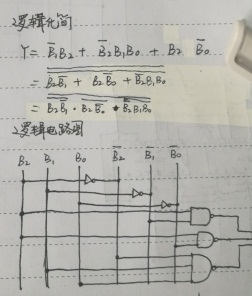 逻辑化简
Y = B̅₁B₂ + B̅₂B₁B₀ + B₂ B̅₀
= B₂B̅₁ + B₂B̅₀ + B̅₂B₁B₀
= B₂B̅₁ · B₂B̅₀ · B̅₂B₁B₀
逻辑电路图
B₂ B₁ B₀ B̅₂ B̅₁ B̅₀